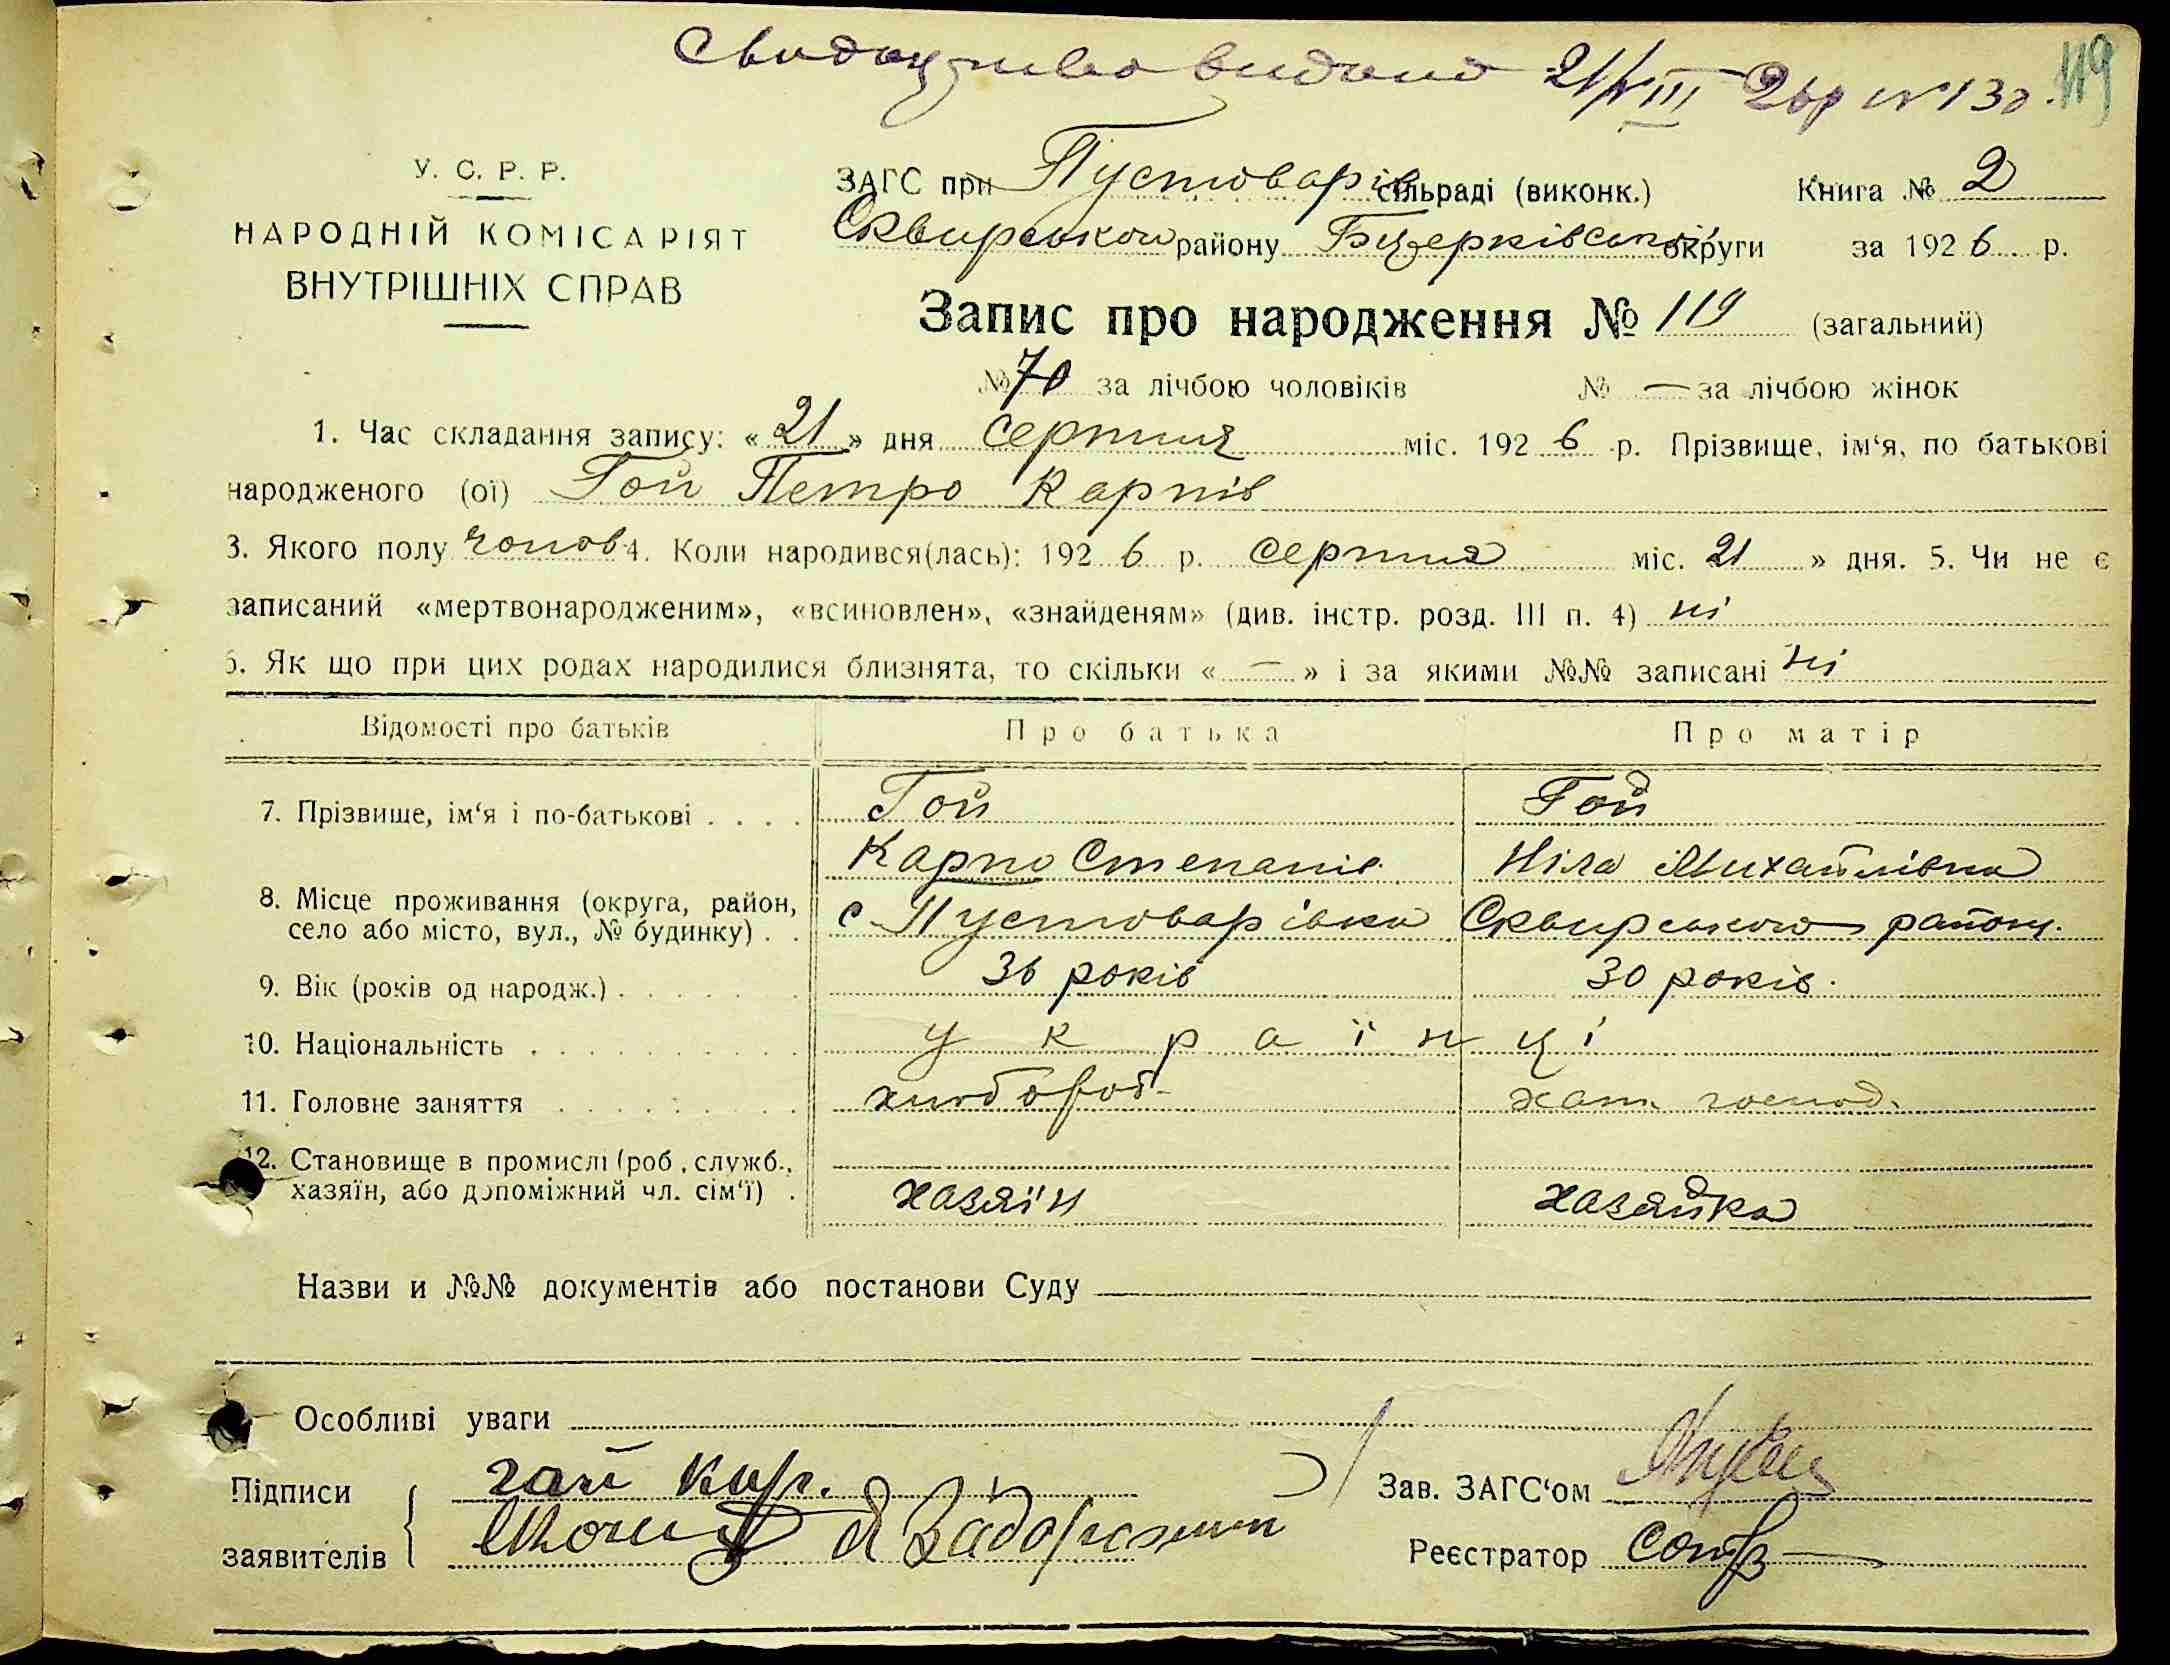 Свидоцтво видано 21/VIII 26р № 130.
119
У. С. Р. Р.
НАРОДНІЙ КОМІСАРІЯТ
ВНУТРІШНІХ СПРАВ
ЗАГС при Пустоварів сільраді (виконк.) Книга № 2
Сквирського району Б Церківської округи за 1926 р.
Запис про народження № 119 (загальний)
№ 70 за лічбою чоловіків № — за лічбою жінок
1. Час складання запису: «21» дня серпня міс. 1926 р. Прізвище, ім‘я, по батькові
народженого (ої) Гой Петро Карпів
3. Якого полу чолов 4. Коли народився(лась): 1926 р. серпня міс. 21 » дня. 5. Чи не є
записаний «мертвонародженим», «всиновлен», «знайденям» (див. інстр. розд. III п. 4) ні
6. Як що при цих родах народилися близнята, то скільки « — » і за якими №№ записані ні
Відомості про батьків Про батька Про матір
7. Прізвище, ім‘я і по-батькові . . . . Гой Гой
Карпо Степанів Ніла Михайлівна
8. Місце проживання (округа, район,
село або місто, вул., № будинку) . . с. Пустоварівка Сквирського району.
9. Вік (років од народж.) . . . . . 36 років 30 років.
10. Національність . . . . . . . . . українці
11. Головне заняття . . . . . . . . хлібороб- хатн. господ.
12. Становище в промислі (роб., служб.,
хазяїн, або допоміжний чл. сім‘ї) . хазяїн хазяйка
Назви и №№ документів або постанови Суду
Особливі уваги
Підписи гай кар. Зав. ЗАГС‘ом
заявителів Реєстратор